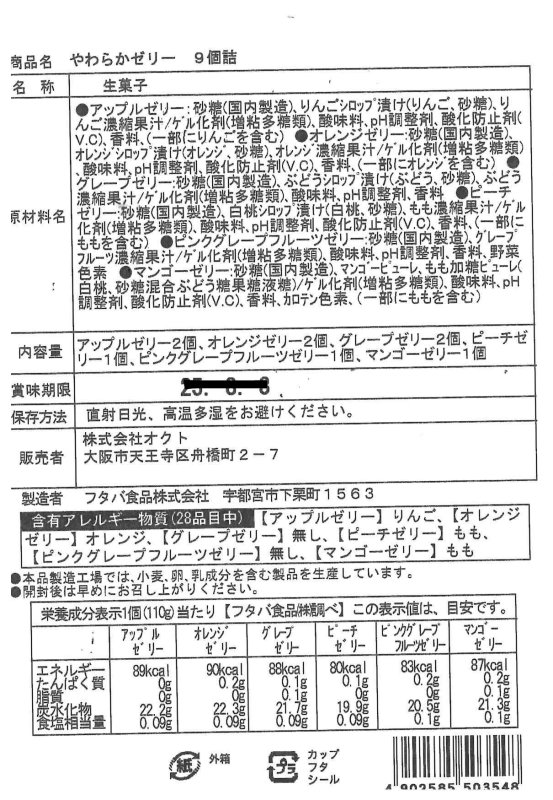 商品名　やわらかゼリー　９個詰
名　称　生菓子
原材料名
●アップルゼリー：砂糖(国内製造)、りんごシロップ漬け(りんご、砂糖)、り
んご濃縮果汁/ゲル化剤(増粘多糖類)、酸味料、pH調整剤、酸化防止剤(
V.C)、香料、(一部にりんごを含む) ●オレンジゼリー：砂糖(国内製造)、
オレンジシロップ漬け(オレンジ、砂糖)、オレンジ濃縮果汁/ゲル化剤(増粘多糖類)
、酸味料、pH調整剤、酸化防止剤(V.C)、香料、(一部にオレンジを含む) ●
グレープゼリー：砂糖(国内製造)、ぶどうシロップ漬け(ぶどう、砂糖)、ぶどう
濃縮果汁/ゲル化剤(増粘多糖類)、酸味料、pH調整剤、香料 ●ピーチ
ゼリー：砂糖(国内製造)、白桃シロップ漬け(白桃、砂糖)、もも濃縮果汁/ゲル
化剤(増粘多糖類)、酸味料、pH調整剤、酸化防止剤(V.C)、香料、(一部に
ももを含む) ●ピンクグレープフルーツゼリー：砂糖(国内製造)、グレープ
フルーツ濃縮果汁/ゲル化剤(増粘多糖類)、酸味料、pH調整剤、香料、野菜
色素 ●マンゴーゼリー：砂糖(国内製造)、マンゴーピューレ、もも加糖ピューレ(
白桃、砂糖混合ぶどう糖果糖液糖)/ゲル化剤(増粘多糖類)、酸味料、pH
調整剤、酸化防止剤(V.C)、香料、カロテン色素、(一部にももを含む)
内容量
アップルゼリー2個、オレンジゼリー2個、グレープゼリー2個、ピーチゼ
リー1個、ピンクグレープフルーツゼリー1個、マンゴーゼリー1個
賞味期限
保存方法　直射日光、高温多湿をお避けください。
販売者
株式会社オクト
大阪市天王寺区舟橋町２－７
製造者　フタバ食品株式会社　宇都宮市下栗町１５６３
含有アレルギー物質(28品目中)【アップルゼリー】りんご、【オレンジ
ゼリー】オレンジ、【グレープゼリー】無し、【ピーチゼリー】もも、
【ピンクグレープフルーツゼリー】無し、【マンゴーゼリー】もも
●本品製造工場では、小麦、卵、乳成分を含む製品を生産しています。
●開封後は早めにお召し上がりください。
栄養成分表示1個(110g)当たり【フタバ食品㈱調べ】この表示値は、目安です。
アップルゼリー　オレンジゼリー　グレープゼリー　ピーチゼリー　ピンクグレープフルーツゼリー　マンゴーゼリー
エネルギー　89kcal　90kcal　88kcal　80kcal　83kcal　87kcal
たんぱく質　0g　0.2g　0.1g　0.1g　0.2g　0.2g
脂質　0g　0g　0.1g　0g　0g　0.1g
炭水化物　22.2g　22.3g　21.7g　19.9g　20.5g　21.3g
食塩相当量　0.09g　0.09g　0.09g　0.09g　0.1g　0.1g
紙　外箱
プラ　カップ
フタ
シール
4 902585 503548